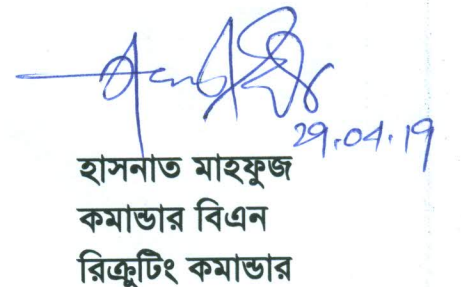 29.04.19
হাসনাত মাহফুজ
কমান্ডার বিএন
রিক্রুটিং কমান্ডার